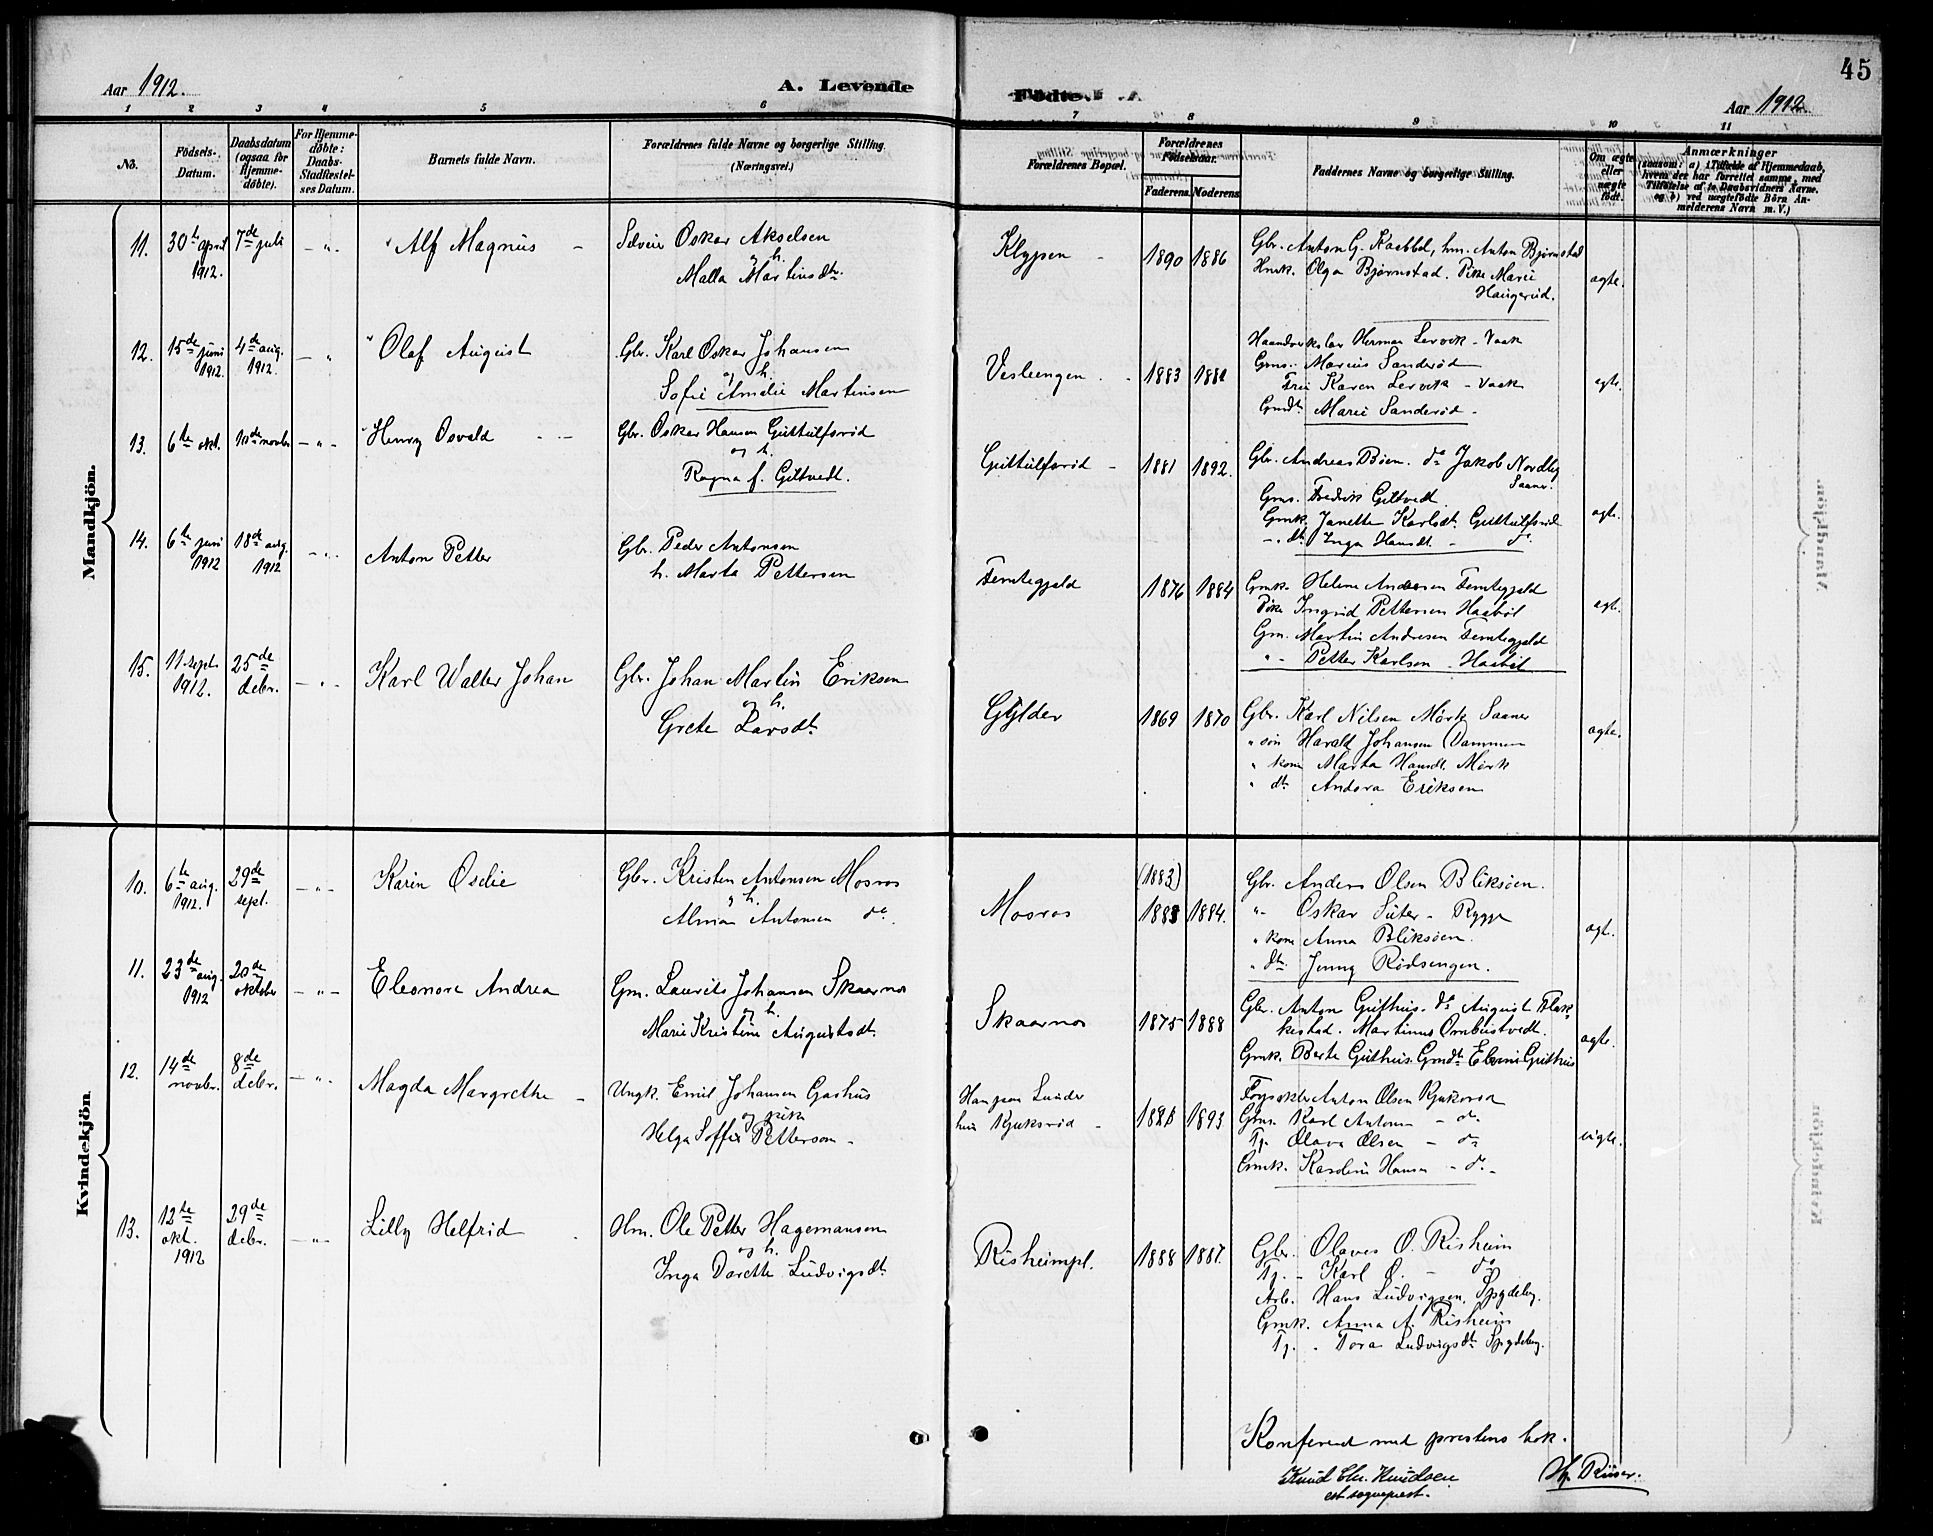 45
Aar 1912.
A. Levende
Fødte.
Aar 1912
1 2 3 4 5 6 7 8 9 10 11
No.
Fødsels-Datum.
Daabsdatum (ogsaa for Hjemme-døbte).
For Hjemme-døbte: Daabs-Stadfæstel-ses Datum.
Barnets fulde Navn.
Forældrenes fulde Navne og borgerlige Stilling. (Næringsvei.)
Forældrenes Bopæl.
Forældrenes Fødselsaar.
Faderens. Moderens.
Faddernes Navne og borgerlige Stilling.
Om ægte eller uægte født.
Anmærkninger
(saasom: a) Tilfælde af Hjemmedaab, hvem der har forrettet samme, med Tilføielse af to Daabsvidners Navne. og b) ved uægtefødte Børn An-melderens Navn m. V.)
Mandkjön.
11. 30te april 1912. 7de juli - " - Alf Magnus -
Oskar Akselsen
og h.
Malla Martinsdtr.
Klypen - 1890 1886
Gbr. Anton G. Kabbel, hm. Anton Bjørnstad
Hmk. Olga Bjørnstad. Pike Marie
Haugerud.
ægte.
12. 15de juni 1912. 4de aug. 1912. - " Olaf August
Gbr. Karl Oskar Johansen
og h.
Sofie Amalie Martinsen
Vesleengen. - 1883 1881
Haandverkslær Herman Lervik - Vaak
Gms. Marius Sanderød
Frue Karen Lervik - Vaak
Gmdtr Marie Sanderød -
egte.
13. 6te okt. 10de novbr - " - Henry Osvald - -
Gbr. Oskar Hansen Guttulfsrød
og h.
Ragna f. Giltvedt.
Guttulfsrød - 1881 1892.
Gbr. Andreas Bøen. do Jakob Nordby
Saaner.
Gms. Fredrik Giltvedt
Gmk. Janette Karlsdt. Guttulfsrød
- " dt. Inga Hansdt. - do
ægte.
14. 6te juni 1912 18de aug. 1912 - " - Anton Petter
Gbr. Peder Antonsen
h. Marta Pettersen
Femtegjeld 1876 1884
Gmk. Helene Andersen Femtegjeld
Pike Ingrid Pettersen Haabøl
Gm. Martin Andresen Femtegjeld
" - Petter Karlsen - Haabøl
egte.
15. 11 sept. 1912. 25de debr. - " - Karl Walter Johan
Gbr. Johan Martin Eriksen
og h.
Grete Larsdt.
Gylder 1869 1870
Gbr. Karl Nilsen Mörk Saaner
" søn Harald Johansen Dammen
" kone Marta Hansdt. Mörk
" dt. Andora Eriksen
ægte.
Kvindekjön
10. 6te aug. 1912. 29de sept. - " - Karin Oselie
Gbr. Kristen Antonsen Mosros
og h.
Alma Antonsen do.
Mosros (1883) 1883 1884.
Gbr. Anders Olsen Bliksøen.
" - Oskar Suter - Rygge
" kone Anna Bliksøen.
" dtr. Jenny Rødsengen.
egte.
11. 23de aug. 1912 20de oktober - " - Eleonore Andrea
Gm. Laurits Johansen Skaarnes
og h.
Marie Kristine Augustsdt.
Skaarnes 1875 1888
Gbr. Anton Guthus. do August Flak-
kestad. Martinus Ombustvedt.
Gmk. Berte Guthus. Gmdtr Guthus
ægte.
12. 14de novbr. 8de debr. - " - Magda Margrethe -
Ungk. Emil Johansen Gashus
og pike
Helga Soffie Pettersen -
Han paa Lunder
hun Kjuksrød - 1893
Anton Olsen Kjuksrød
Gms. Karl Antons - do.
Tj. Olava Olsen - do
Gmk. Karoline Hansen - do. -
uegte.
13. 12te okt. 1912 29de debr. - " - Lilly Helfrid
Hm. Ole Petter Hagemansen
og h.
Inga Dorette Ludvigsdt
Risheimpl. 1888 1887.
Gbr. Olaves O. Risheim
Tj. - Karl O. - do
Arb. Hans Ludvigsen. Spydeberg.
Gmk. Anna A. Risheim
Tj. - Tora Ludvigsdt. Spydeberg.
Konferend med prestens bok.
Knud Chr. Knudsen
est sognepest.